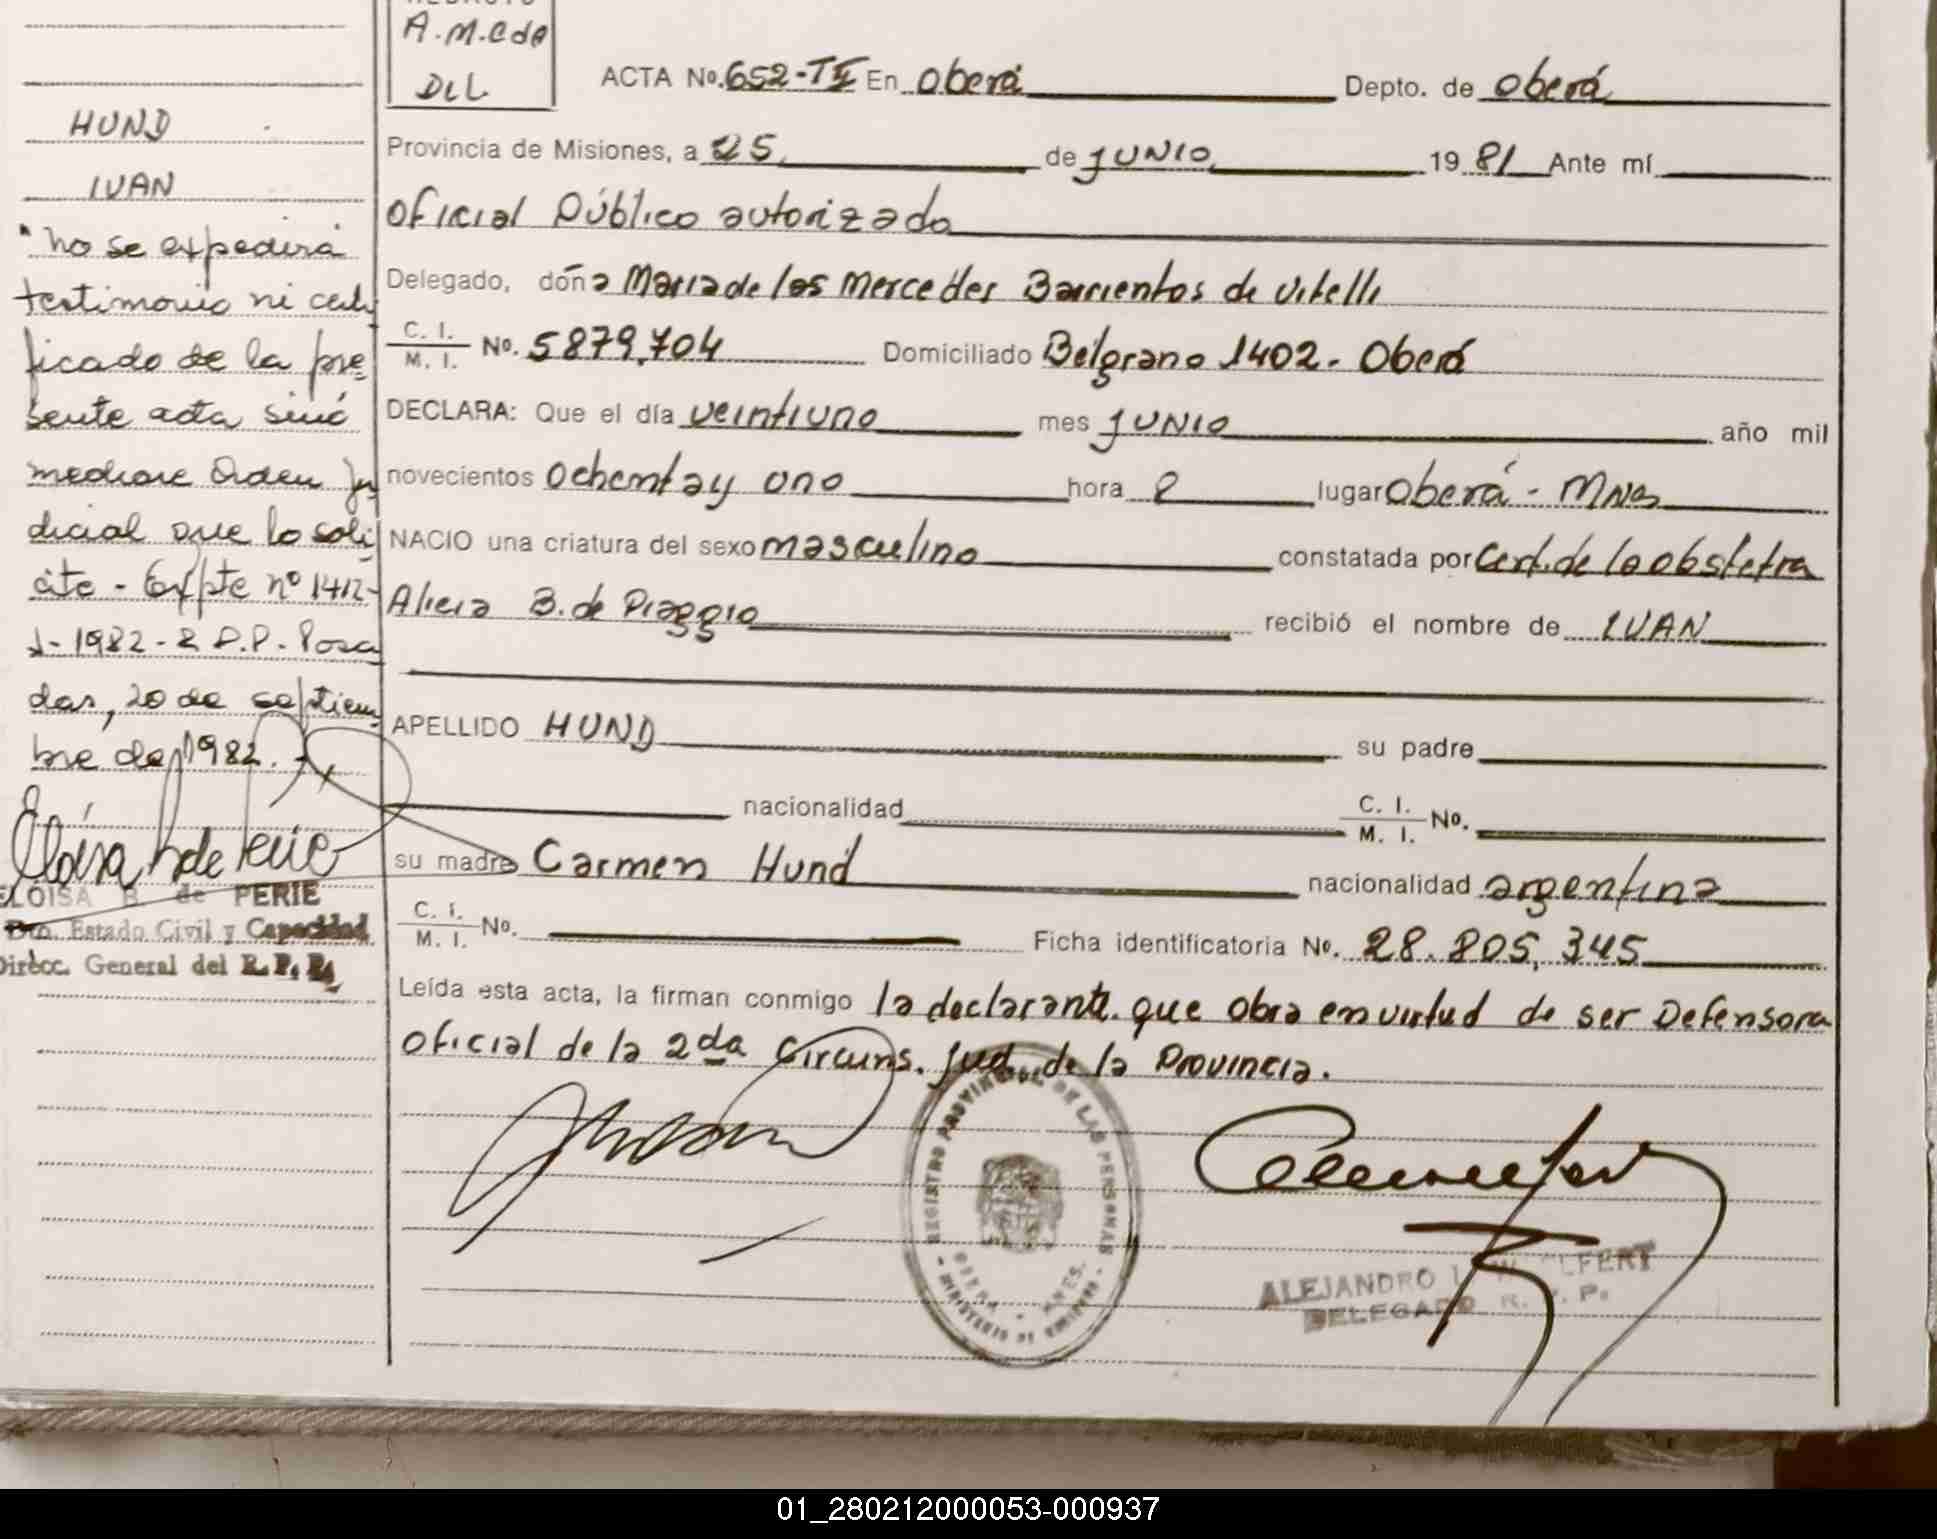 A.M.C de
DLL
ACTA No. 652-TII En Oberá Depto. de Oberá
HUND
Provincia de Misiones, a 25 de JUNIO 1981 Ante mí
IVAN
Oficial Público autorizado
"no se expedirá
testimonio ni certi
ficado de la pre
sente acta sinó
mediare Orden ju
dicial que lo soli
cite - Expte nº 1412-
J-1982-R.P.P. Posa
das, 20 de septiem
bre de 1982.
ELOISA B. de PERIE
Dto. Estado Civil y Capacidad
Direcc. General del R. P. P.
Delegado, doña Maria de los Mercedes Barrientos de Vitelli
C. I.
M. I. No. 5879.704 Domiciliado Belgrano 1402. Oberá
DECLARA: Que el día veintiuno mes JUNIO año mil
novecientos ochenta y uno hora 2 lugar Oberá - Mnes
NACIO una criatura del sexo masculino constatada por Cert. de la obstetra
Alicia B. de Piaggio recibió el nombre de IVAN
APELLIDO HUND su padre
nacionalidad C. I.
M. I. No.
su madre Carmen Hund nacionalidad argentina
C. I.
M. I. No. Ficha identificatoria No. 28.805.345
Leída esta acta, la firman conmigo la declarante que obra en virtud de ser Defensora
Oficial de la 2da Circuns. Jud. de la Provincia.
REGISTRO PROVINCIAL DE LAS PERSONAS
OBERA MNES.
MINISTERIO DE GOBIERNO
ALEJANDRO
DELEGADO R. P. P.
01_280212000053-000937